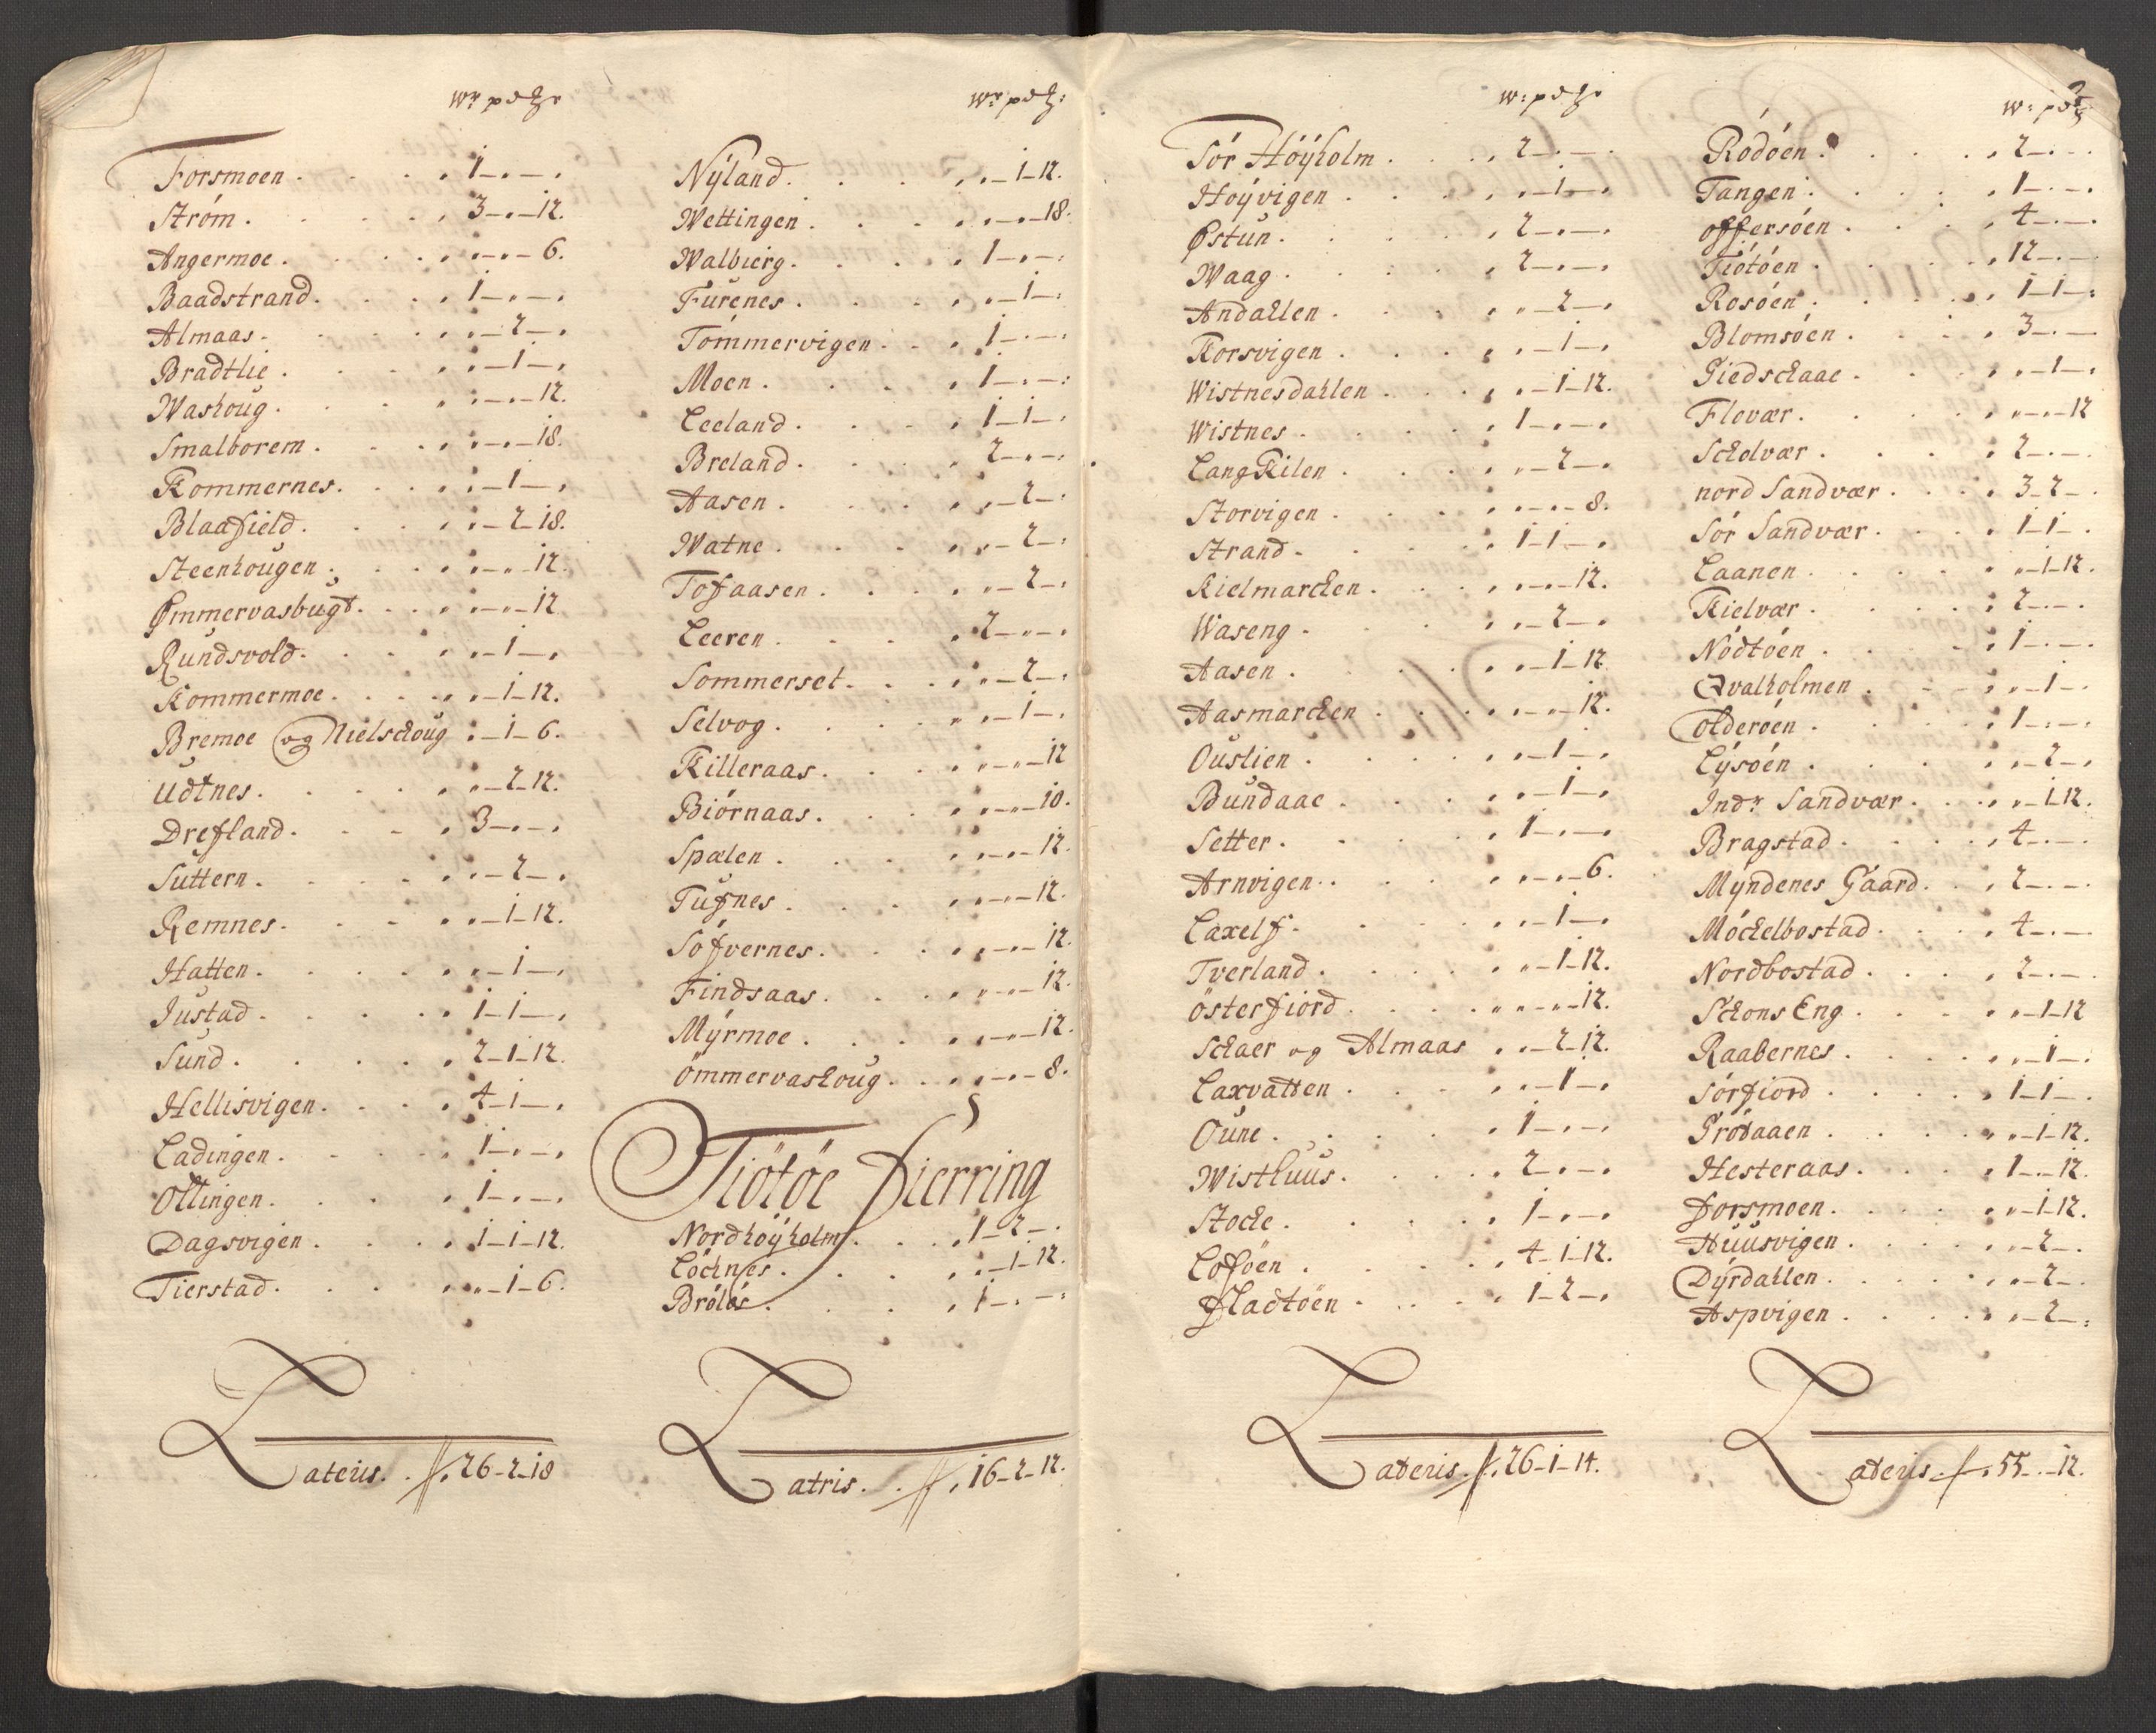 Wr pd
Forsmoen . . . . 1–„–„
Strøm . . . . . 3–„–12.
Angermoe . . . . „–„–6.
Baadstrand . . . . 1–„–„
Almaas . . . . „–2–„
Bradtlie . . . . „–1–„
Washoug . . . . „–„–12.
Smalborem . . . . „–„–18.
Kommernes . . . . „–1–„
Blaafield . . . . „–2–18.
Steenhougen . . . . „–„–12.
Ømmervasbugt . . . . „–„–12
Rundsvold . . . . „–1–„
Kommermoe . . . . „–1–12.
Bremoe og Nielschoug : –1–6.
Udtnes . . . . „–2–12.
Drefland . . . . 3–„–„
Suttern . . . . „–2–„
Remnes . . . . „–1–12.
Hatten . . . . „–1–„
Justad . . . . 1–1–„
Sund . . . . 2–1–12.
Hellisvigen . . . . 4–1–„
Ladingen . . . . 1–„–„
Ottingen . . . . 1–„–„
Dagsvigen . . . . 1–1–12.
Tierstad . . . . „–1–6.
Lateris . . 26–2–18
Wr pd
Nÿland . . . . „–1–12.
Wettingen . . . . „–„–18.
Walbierg . . . . 1–„–„
Furenes . . . . „–1–„
Tømmervigen . . . 1–„–„
Moen . . . . 1–„–„
Leeland . . . . 1–1–„
Breland . . . . 2–„–„
Aasen . . . . „–2–„
Watne . . . . „–2–„
Tofaasen . . . . „–2–„
Leeren . . . . 2–„–„
Sommerset . . . . „–2–„
Selvog . . . . „–1–„
Killeraas . . . . „–„–12
Biørnaas . . . . „–„–10.
Spalen . . . . „–„–12.
Tufnes . . . . „–„–12.
Søfvernes . . . . „–„–12.
Findsaas . . . . „–„–12.
Mÿrmoe . . . . „–„–12.
Ømmervashoug . . . „–„–8.
Tiötöe fierring
Nordhöÿholm . . . 1–2–„
Löchnes . . . . „–1–12.
Bröløs . . . . 1–„–„
Latris . . 16–2–12.
W: pd
Sör Höÿholm . . . . 2–„–„
Höÿvigen . . . . „–1–„
Østun . . . . 2–„–„
Waag . . . . 2–„–„
Andahlen . . . . „–2–„
Korsvigen . . . . „–1–„
Wistnesdahlen . . . „–1–12.
Wistnes . . . . 1–„–„
LangKilen . . . . „–2–„
Storvigen . . . . „–„–8.
Strand . . . . 1–1–„
Kielmarchen . . . . „–„–12.
Waseng . . . . „–2–„
Aasen . . . . „–1–12
Aasmarchen . . . . „–„–12.
Ouslien . . . . „–1–„
Bundaae . . . . „–1–„
Setter . . . . 1–„–„
Arnvigen . . . . „–„–6.
Laxelf . . . . „–1–„
Tverland . . . . „–1–12.
Østerfiord . . . . „–„–12.
Schaer og Almaas . . „–2–12.
Laxvatten . . . . „–1–„
Oune . . . . 1–„–„
Wisthuus . . . . 2–„–„
Stoche . . . . 1–„–„
Loføen . . . . 4–1–12.
fladtøen . . . . 1–2–„
Lateris . 26–1–14.
W: pd
Rödøen . . . . 2–„–„
Tangen . . . . 1–„–„
offersøen . . . . 4–„–„
Tiøtøen . . . . 12–„–„
Rosøen . . . . 1–1–„
Blomsøen . . . . 3–„–„
Giedschaae . . . . „–1–„
Flovær . . . . „–„–12
Scholvær . . . . 2–„–„
nord Sandvær . . . 3–2–„
Sör Sandvær . . . . 1–1–„
Laanen . . . . „–1–12.
Kielvær . . . . 2–„–„
Nödtøen . . . . 1–„–„
Qvalholmen . . . . „–1–„
olderøen . . . . 1–„–„
Lÿsøen . . . . „–2–„
Indr Sandvær . . . „–1–12.
Bragstad . . . . 4–„–„
Mÿndenes Gaard . . 2–„–„
Möchelbostad . . . . 4–„–„
Nordbostad . . . . 2–„–„
SchonsEng . . . . „–1–12
Raabernes . . . . „–1–„
Sörfiord . . . . 1–1–„
Grødaaen . . . . „–1–12.
Hesteraas . . . . 1–„–12.
forsmoen . . . . „–1–12.
Huusvigen . . . . „–2–„
Dÿrdahlen . . . . „–2–„
Aspvigen . . . . „–2–„
Lateris . 55–„–12.